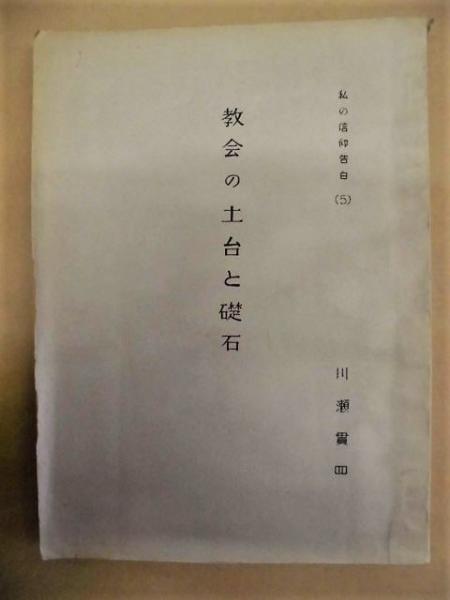 私の信仰告白(5)
教会の土台と礎石
川瀬貫四